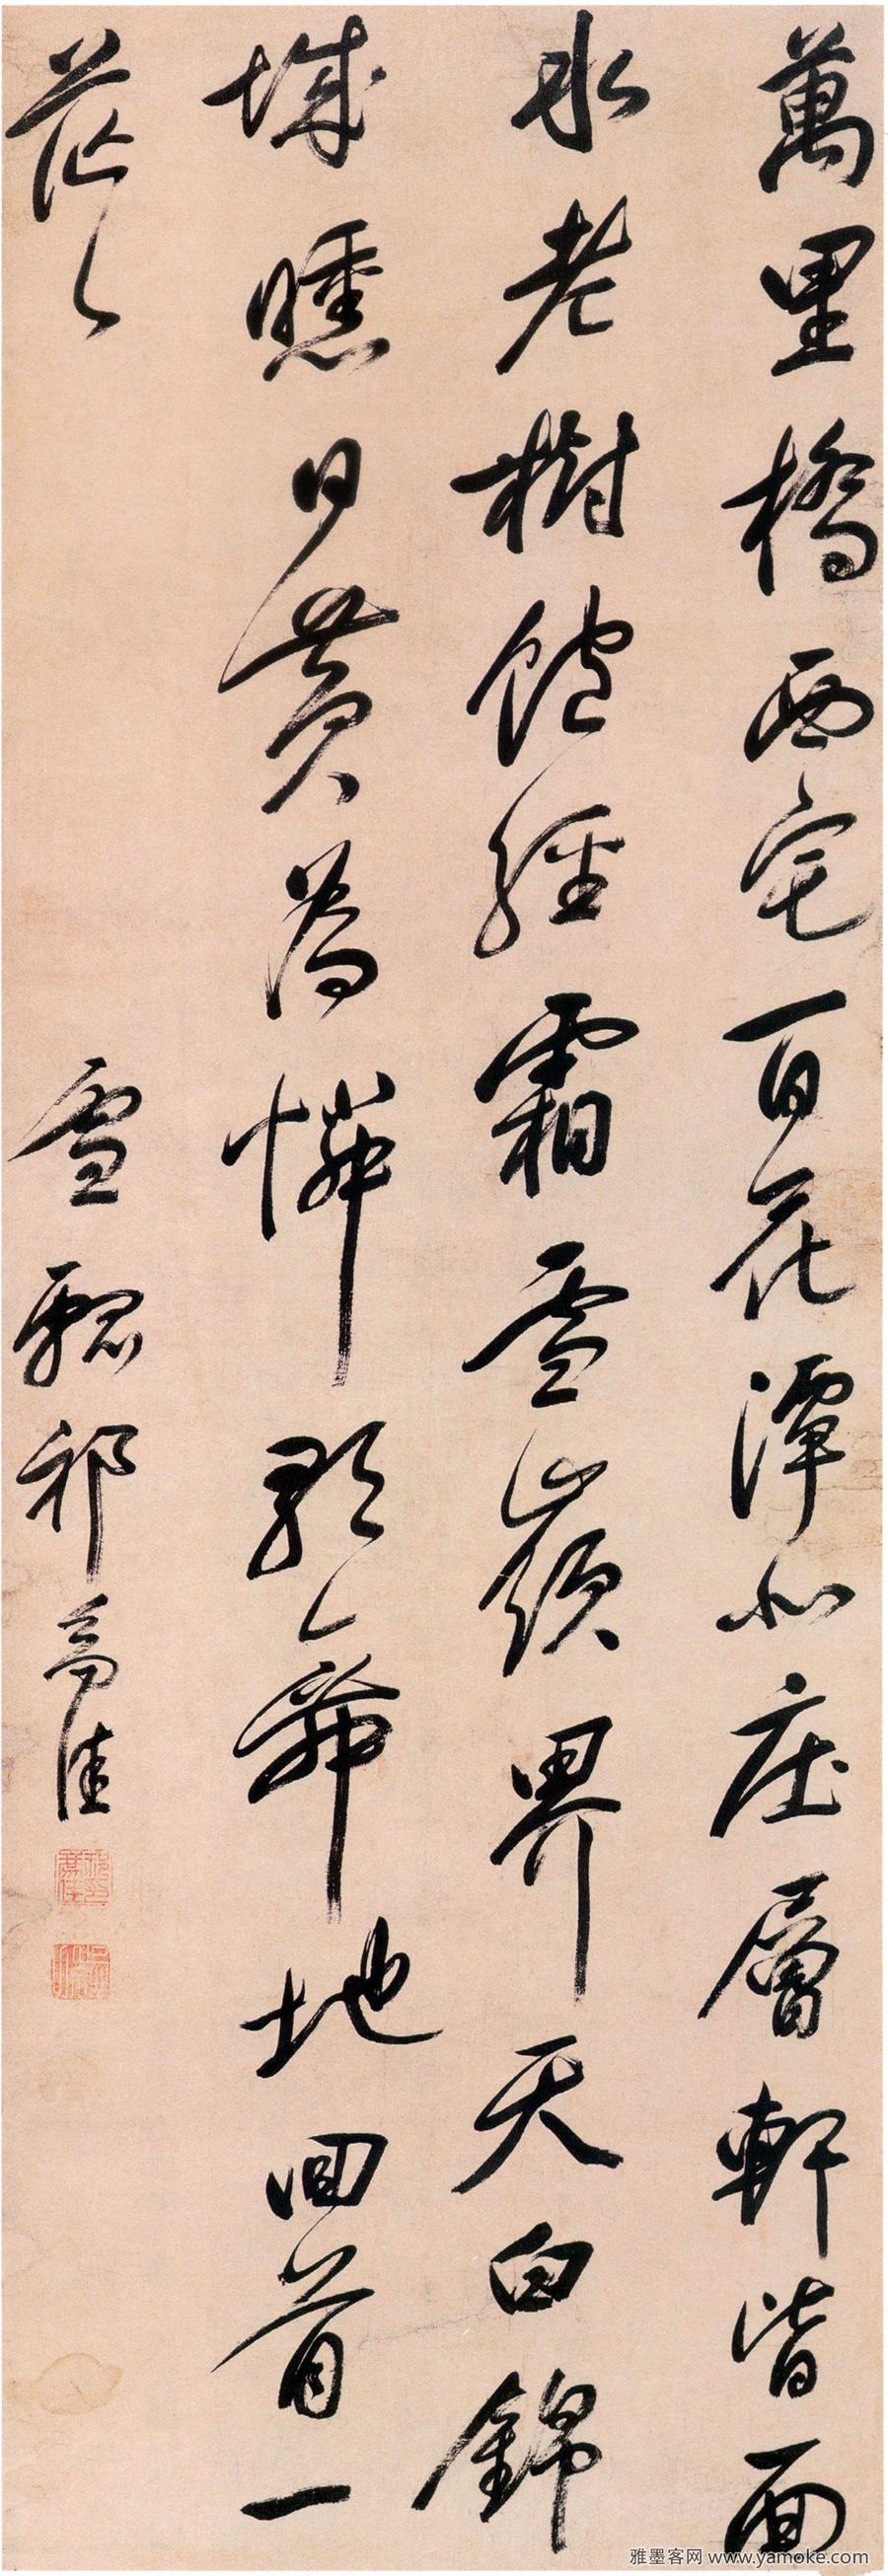 萬里橋西宅百花潭北庄層軒皆面
水老樹飽經霜雪嶺界天白錦
城曛日黃為憐歌舞地回首一
茫茫
雪瓢祁豸佳
雅墨客网 www.yamoke.com